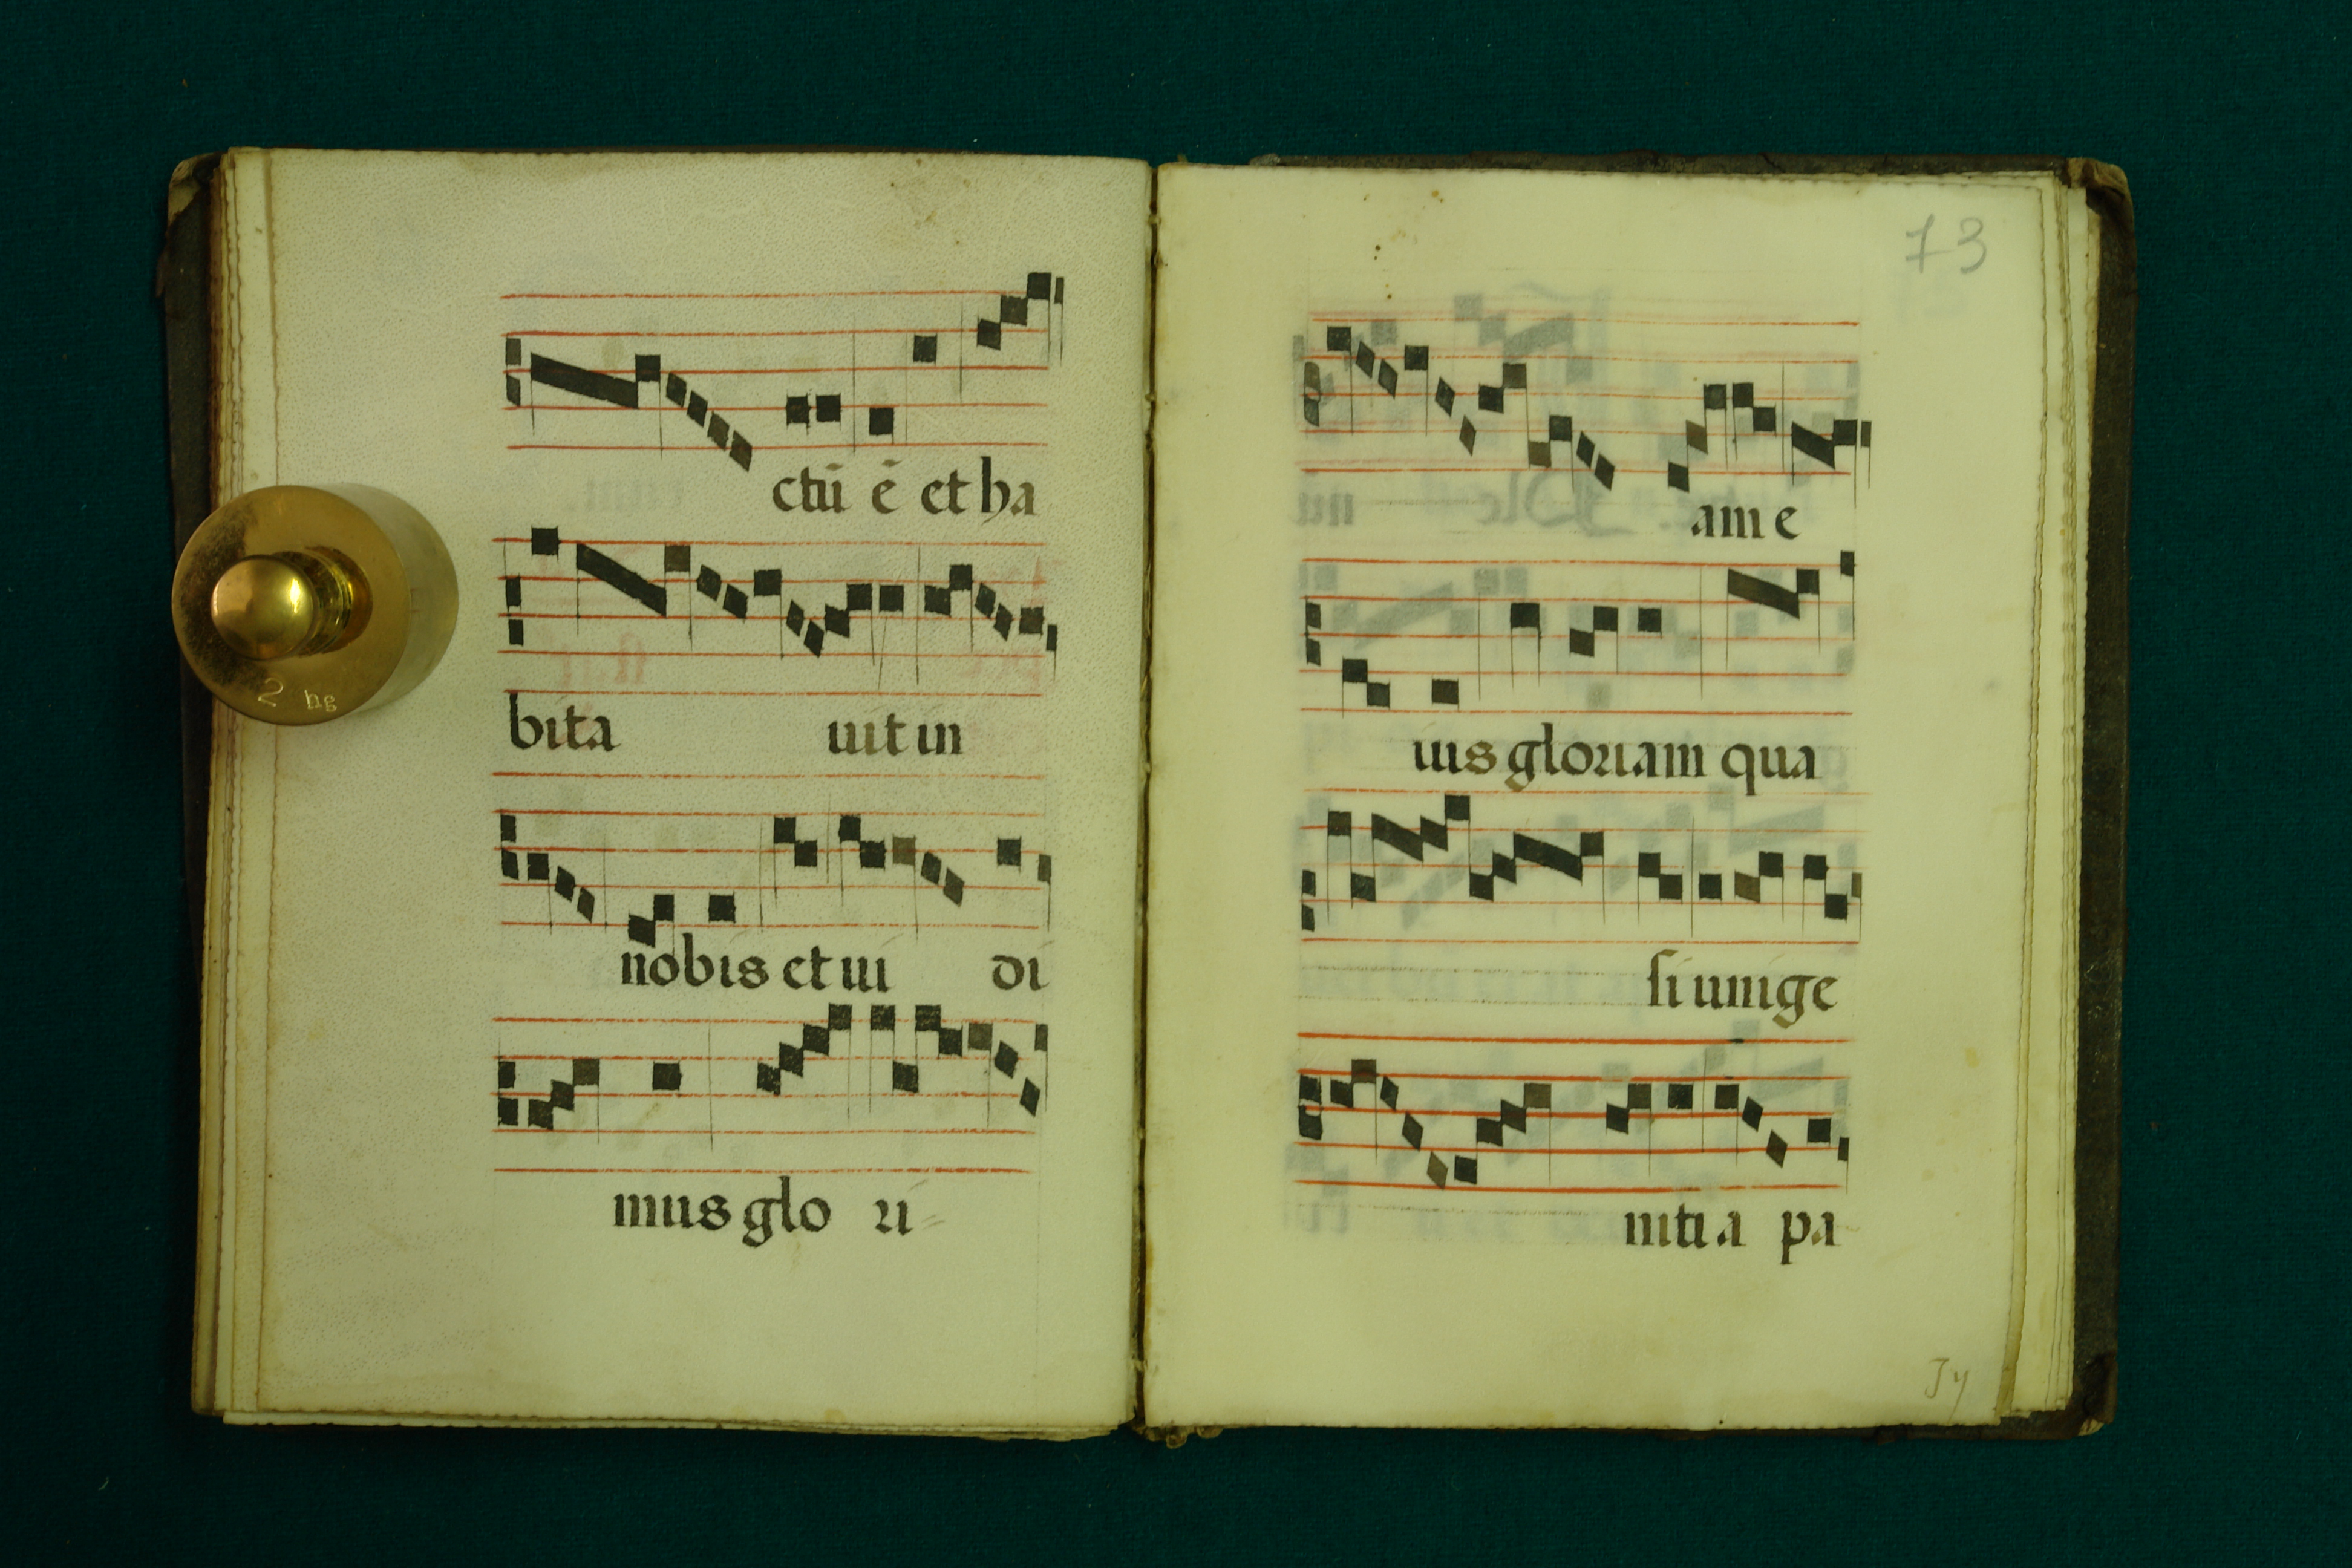 ctū ē et ha
bita uit in
nobis et ui di
mus glo ri
2 hg
73
am e
ius gloriam qua
si unige
niti a pa